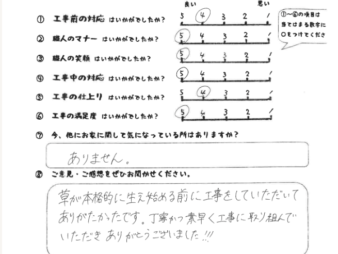 良い 悪い
① 工事前の対応 はいかがでしたか? 5 4 3 2 1
② 職人のマナー はいかがでしたか? 5 4 3 2 1
③ 職人の笑顔 はいかがでしたか? 5 4 3 2 1
④ 工事中の対応 はいかがでしたか? 5 4 3 2 1
⑤ 工事の仕上り はいかがでしたか? 5 4 3 2 1
⑥ 工事の満足度 はいかがでしたか? 5 4 3 2 1
①〜⑥の項目は
当てはまる数字に
○をつけてくださ
⑦ 今、他にお家に関して気になっている所はありますか?
ありません。
⑧ ご意見・ご感想をぜひお聞かせください。
草が本格的に生え始める前に工事をしていただいて
ありがたかったです。丁寧かつ素早く工事に取り組んで
いただき ありがとうございました!!!